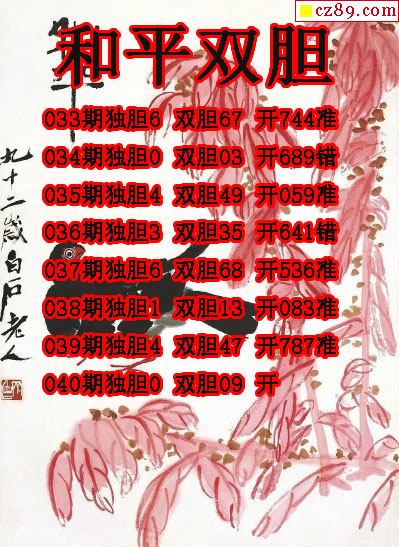 cz89.com
和平双胆
033期独胆6 双胆67 开744准
034期独胆0 双胆03 开689错
035期独胆4 双胆49 开059准
036期独胆3 双胆35 开641错
037期独胆6 双胆68 开536准
038期独胆1 双胆13 开083准
039期独胆4 双胆47 开787准
040期独胆0 双胆09 开
九十二岁白石老人